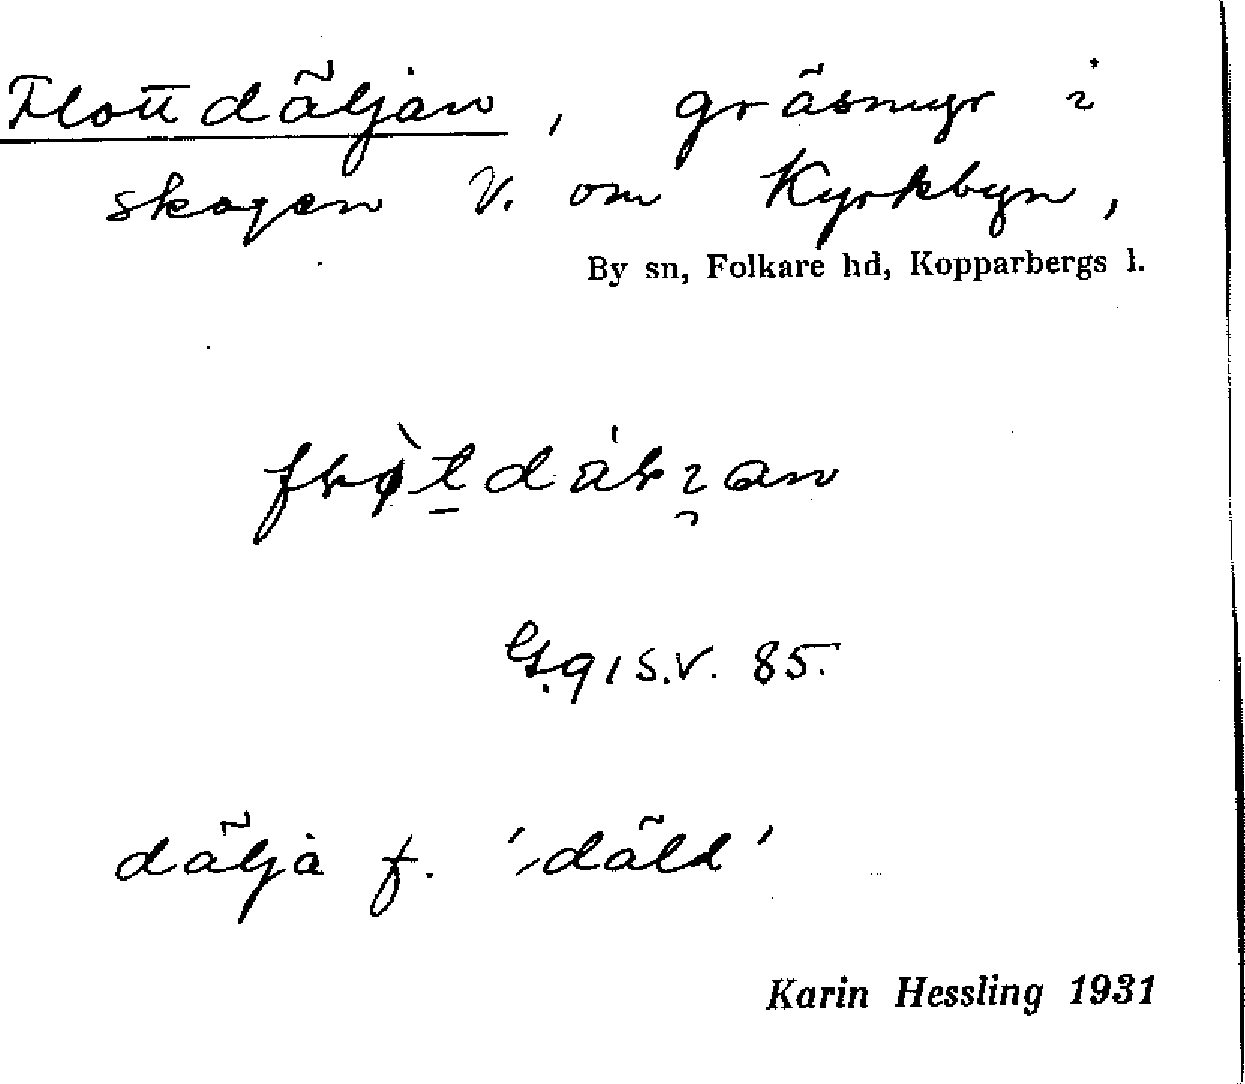 Flottdäljan, gräsmyr i
skogen V. om Kyrkbyn,
By sn, Folkare hd, Kopparbergs l.
G.91 S.V. 85.
dälja f. 'däld'
Karin Hessling 1931